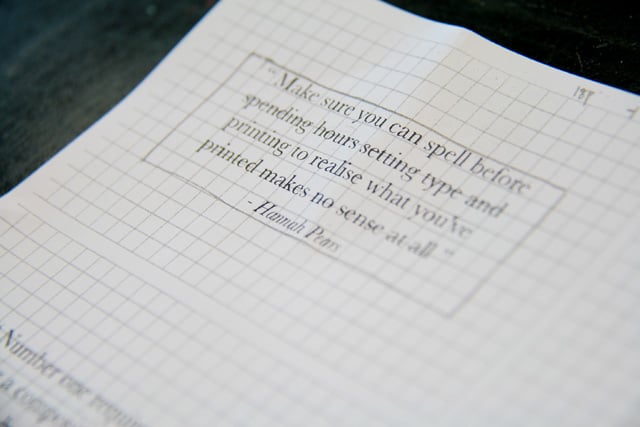 18T
"Make sure you can spell before
spending hours setting type and
printing to realise what you've
printed makes no sense at all "
- Hannah Pears
Number one
a